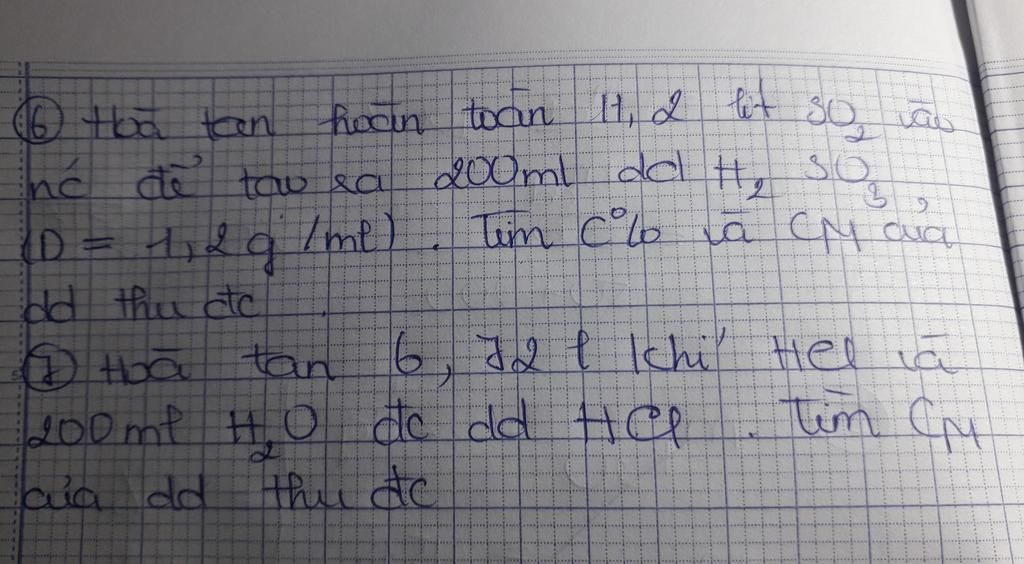 ⑥ Hoà tan hoàn toàn 11,2 lít SO₂ vào
nć để tạo ra 200ml dd H₂SO₃
(D = 1,2g/ml). Tìm C% và CM của
dd thu đc.
⑦ Hoà tan 6,72 l khí HCl và
200ml H₂O đc dd HCl. Tìm CM
của dd thu đc